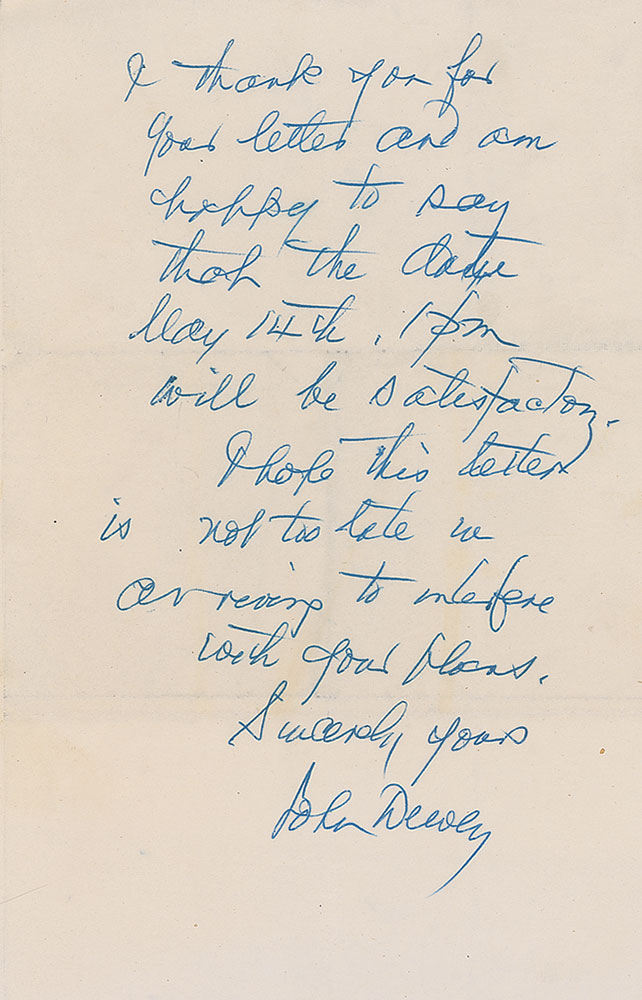 I thank you for
your letter and am
happy to say
that the date
May 14th, 1 pm
will be satisfactory.
I hope this letter
is not too late in
arriving to interfere
with your plans.
Sincerely yours
John Dewey